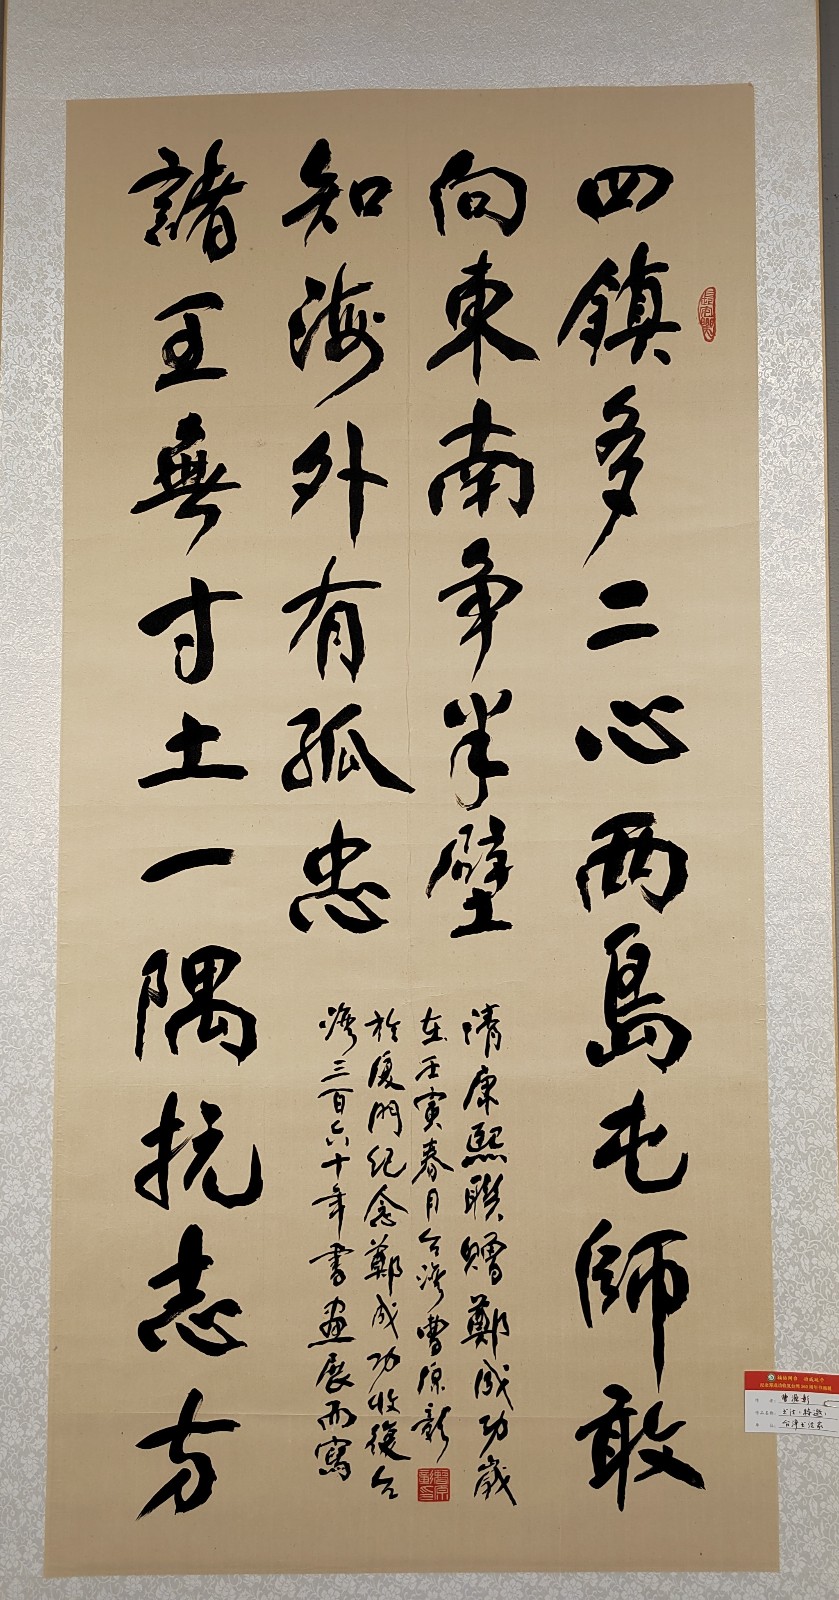 四鎮多二心兩島屯師敢
向東南争半壁
諸王無寸土一隅抗志方
知海外有孤忠
清康熙聯贈鄭成功歲
在壬寅春月台灣曹原彰
於厦門纪念鄭成功收復台
灣三百六十年書画展而寫
曹原彰